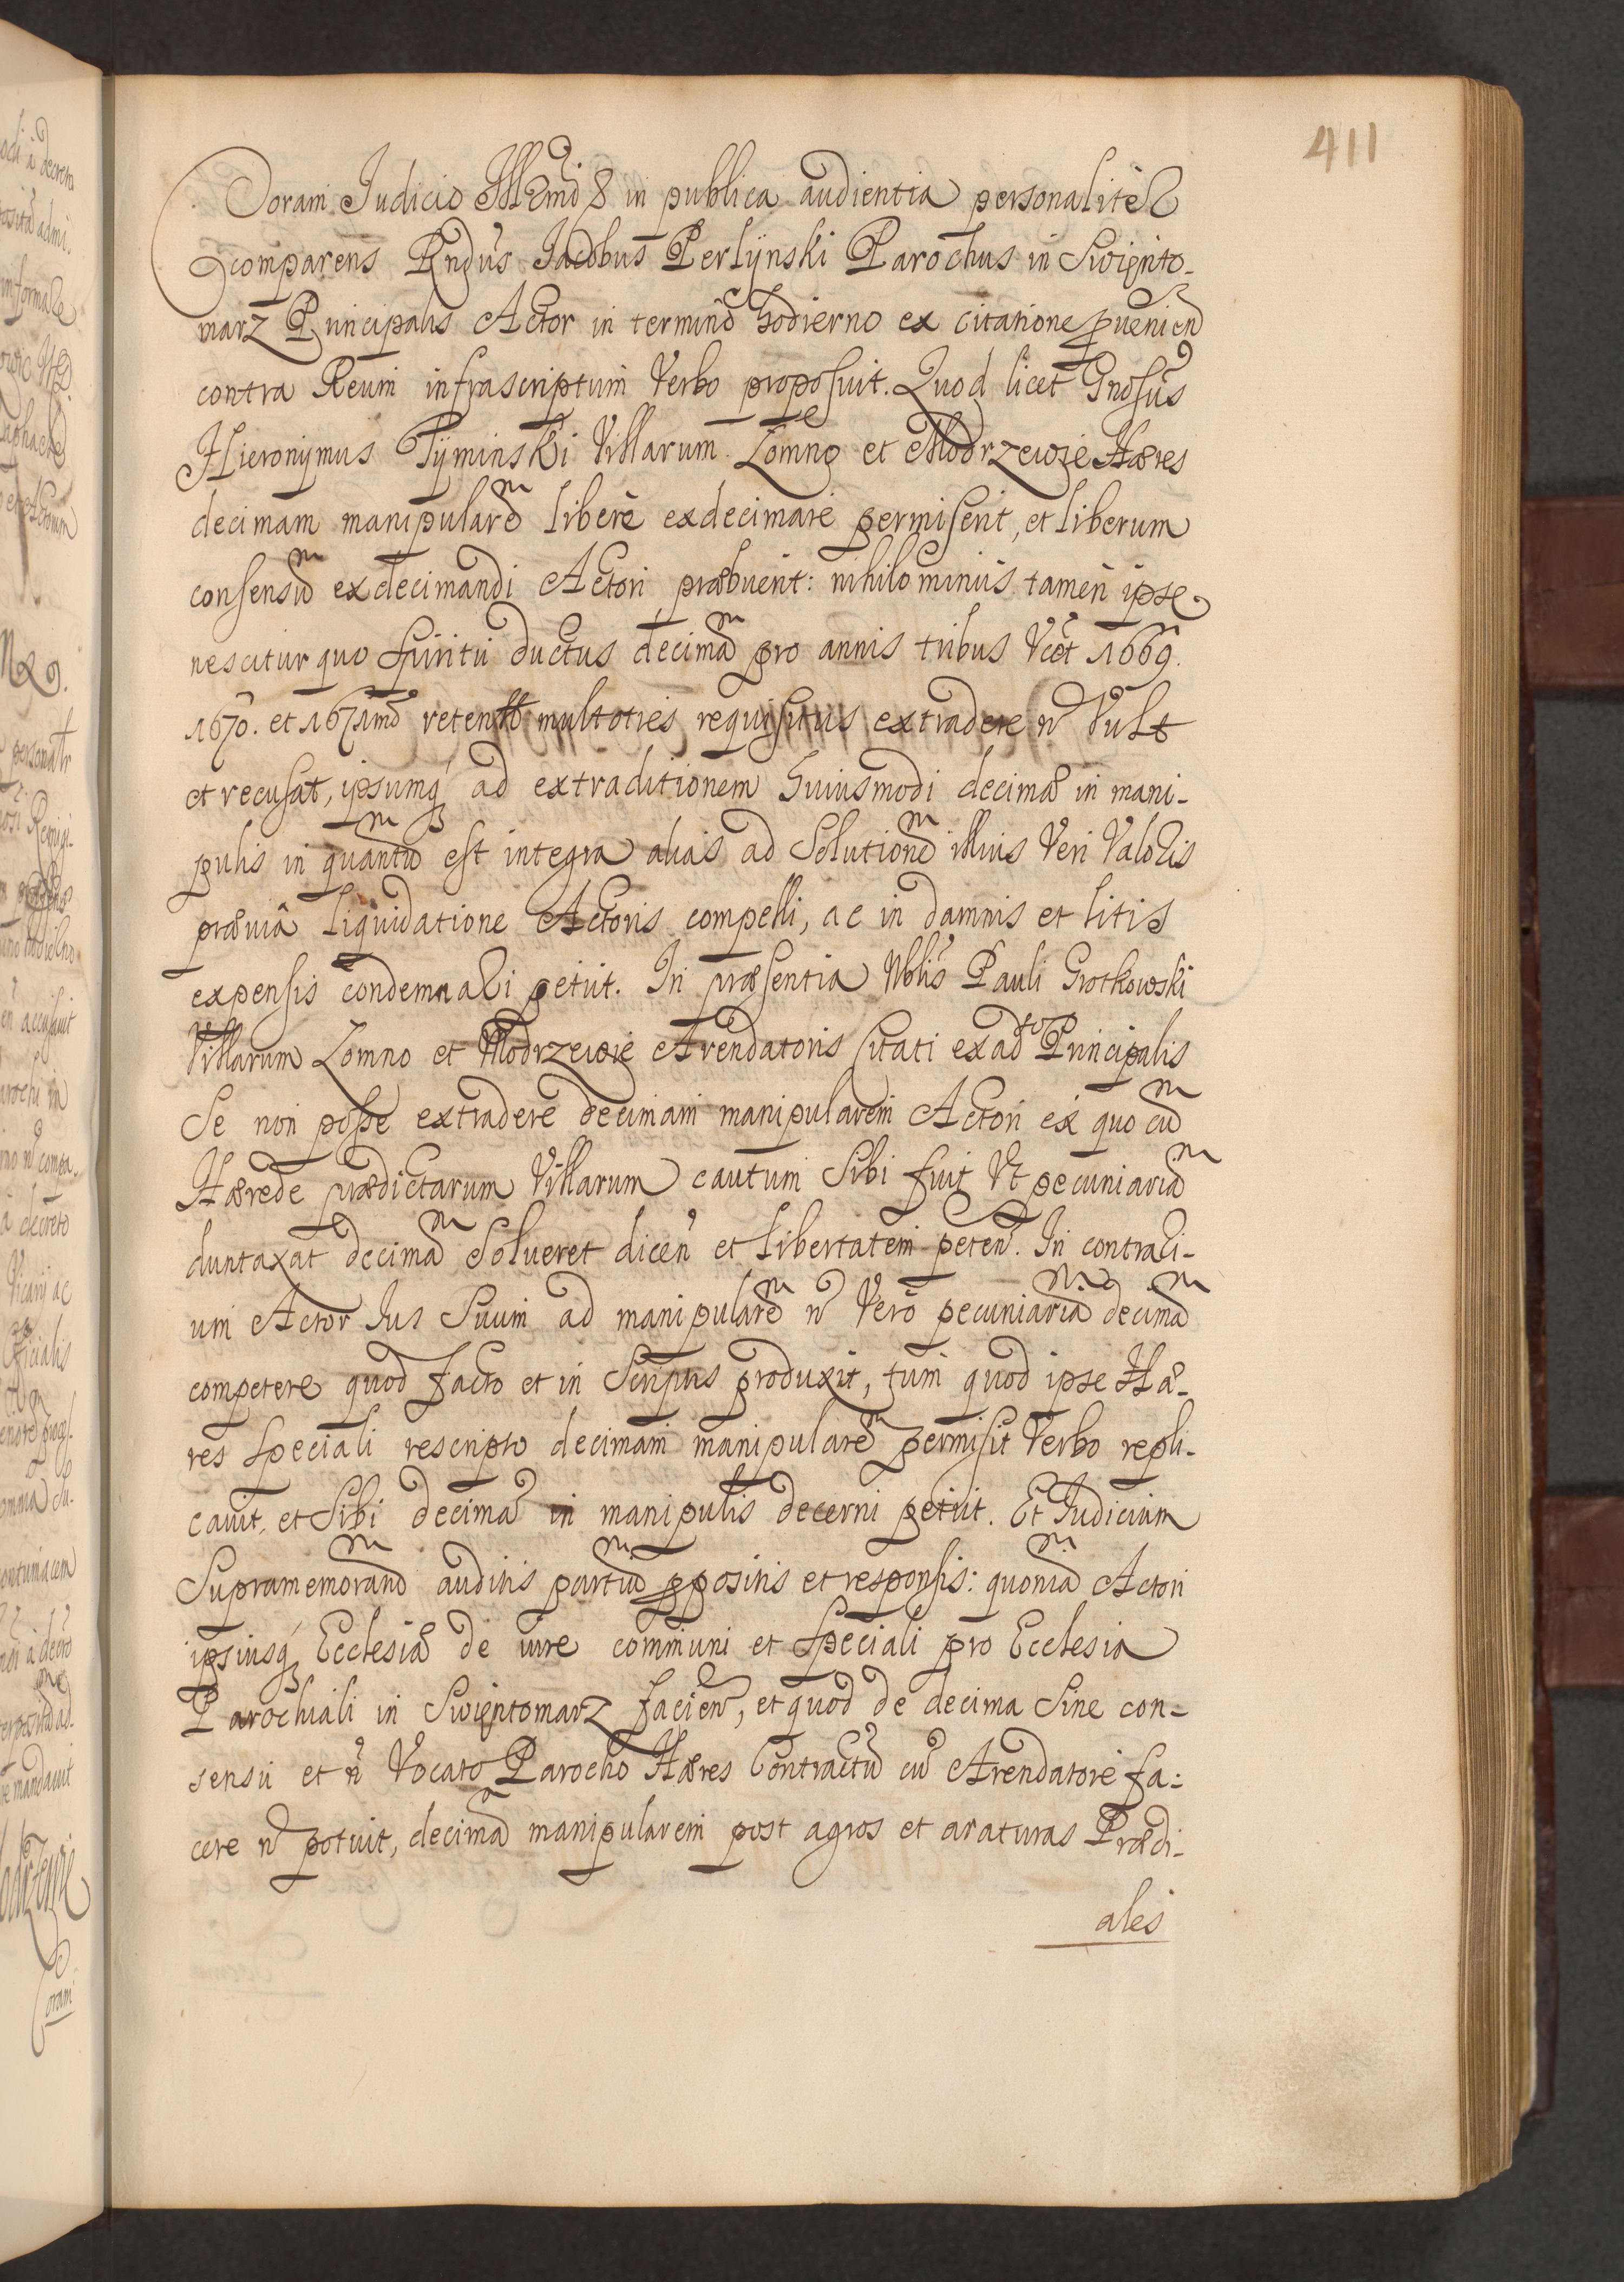 411
Coram Judicio Illmo & in publica audientia personaliter
comparens Rndus Jacobus Perlÿnski Parochus in Swięnto-
marz Principalis Actor in termino hodierno ex citatione pvenien
contra Reum infrascriptum Verbo proposuit. Quod licet Gnosus
Hieronymus Tÿminski Villarum Łomno et Modrzewie Hæres
decimam manipularem liberè exdecimare permiserit, et liberum
consensum exdecimandi Actori præbuerit: nihilominus tamen ipse
nescitur quo Spiritu ductus decimam pro annis tribus Vcet 1669.
1670. et 1671mo retenta multoties requisitus extradere n Vult
et recusat, ipsumq ad extraditionem huiusmodi decimæ in mani-
pulis in quantum est integra alias ad Solutionem illius Veri Valoris
præviâ liquidatione Actoris compelli, ac in damnis et litis
expensis condemnari petiit. In præsentia Nblis Pauli Grotkowski
Villarum Łomno et Modrzewie Arendatoris Citati ex adto Principalis
Se non posse extradere decimam manipularem Actori ex quo cum
Hærede prædictarum Villarum cautum Sibi fuit Vt pecuniariam
duntaxat decimam Solueret dicen et libertatem peten. In contrari-
um Actor Jus Suum ad manipularem n Verò pecuniariam decimam
competere quod facto et in Scriptis produxit, tum quod ipse Hæ-
res Speciali rescripto decimam manipularem permisit Verbo repli-
cavit, et Sibi decimam in manipulis decerni petiit. Et Judicium
Supramemoratum auditis partium ppositis et responsis: quoniam Actori
ipsiusq Ecclesiæ de iure communi et Speciali pro Ecclesia
Parochiali in Swięntomarz facien, et quod de decima Sine con-
sensu et n Vocato Parocho Hæres Contractum cum Arendatore fa-
cere n potuit, decimam manipularem post agros et araturas Prædi-
ales